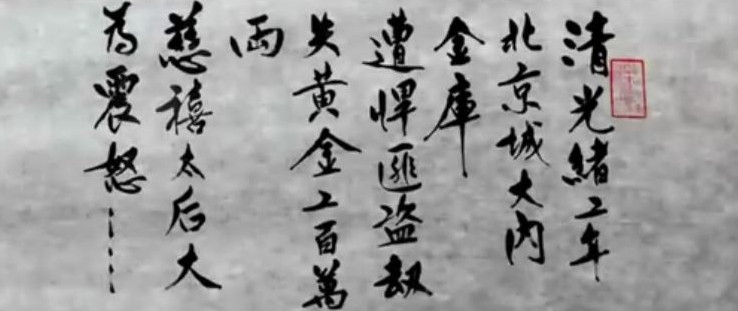 清光緒二年
北京城大內
金庫
遭悍匪盜劫
失黃金二百萬
両
慈禧太后大
為震怒……